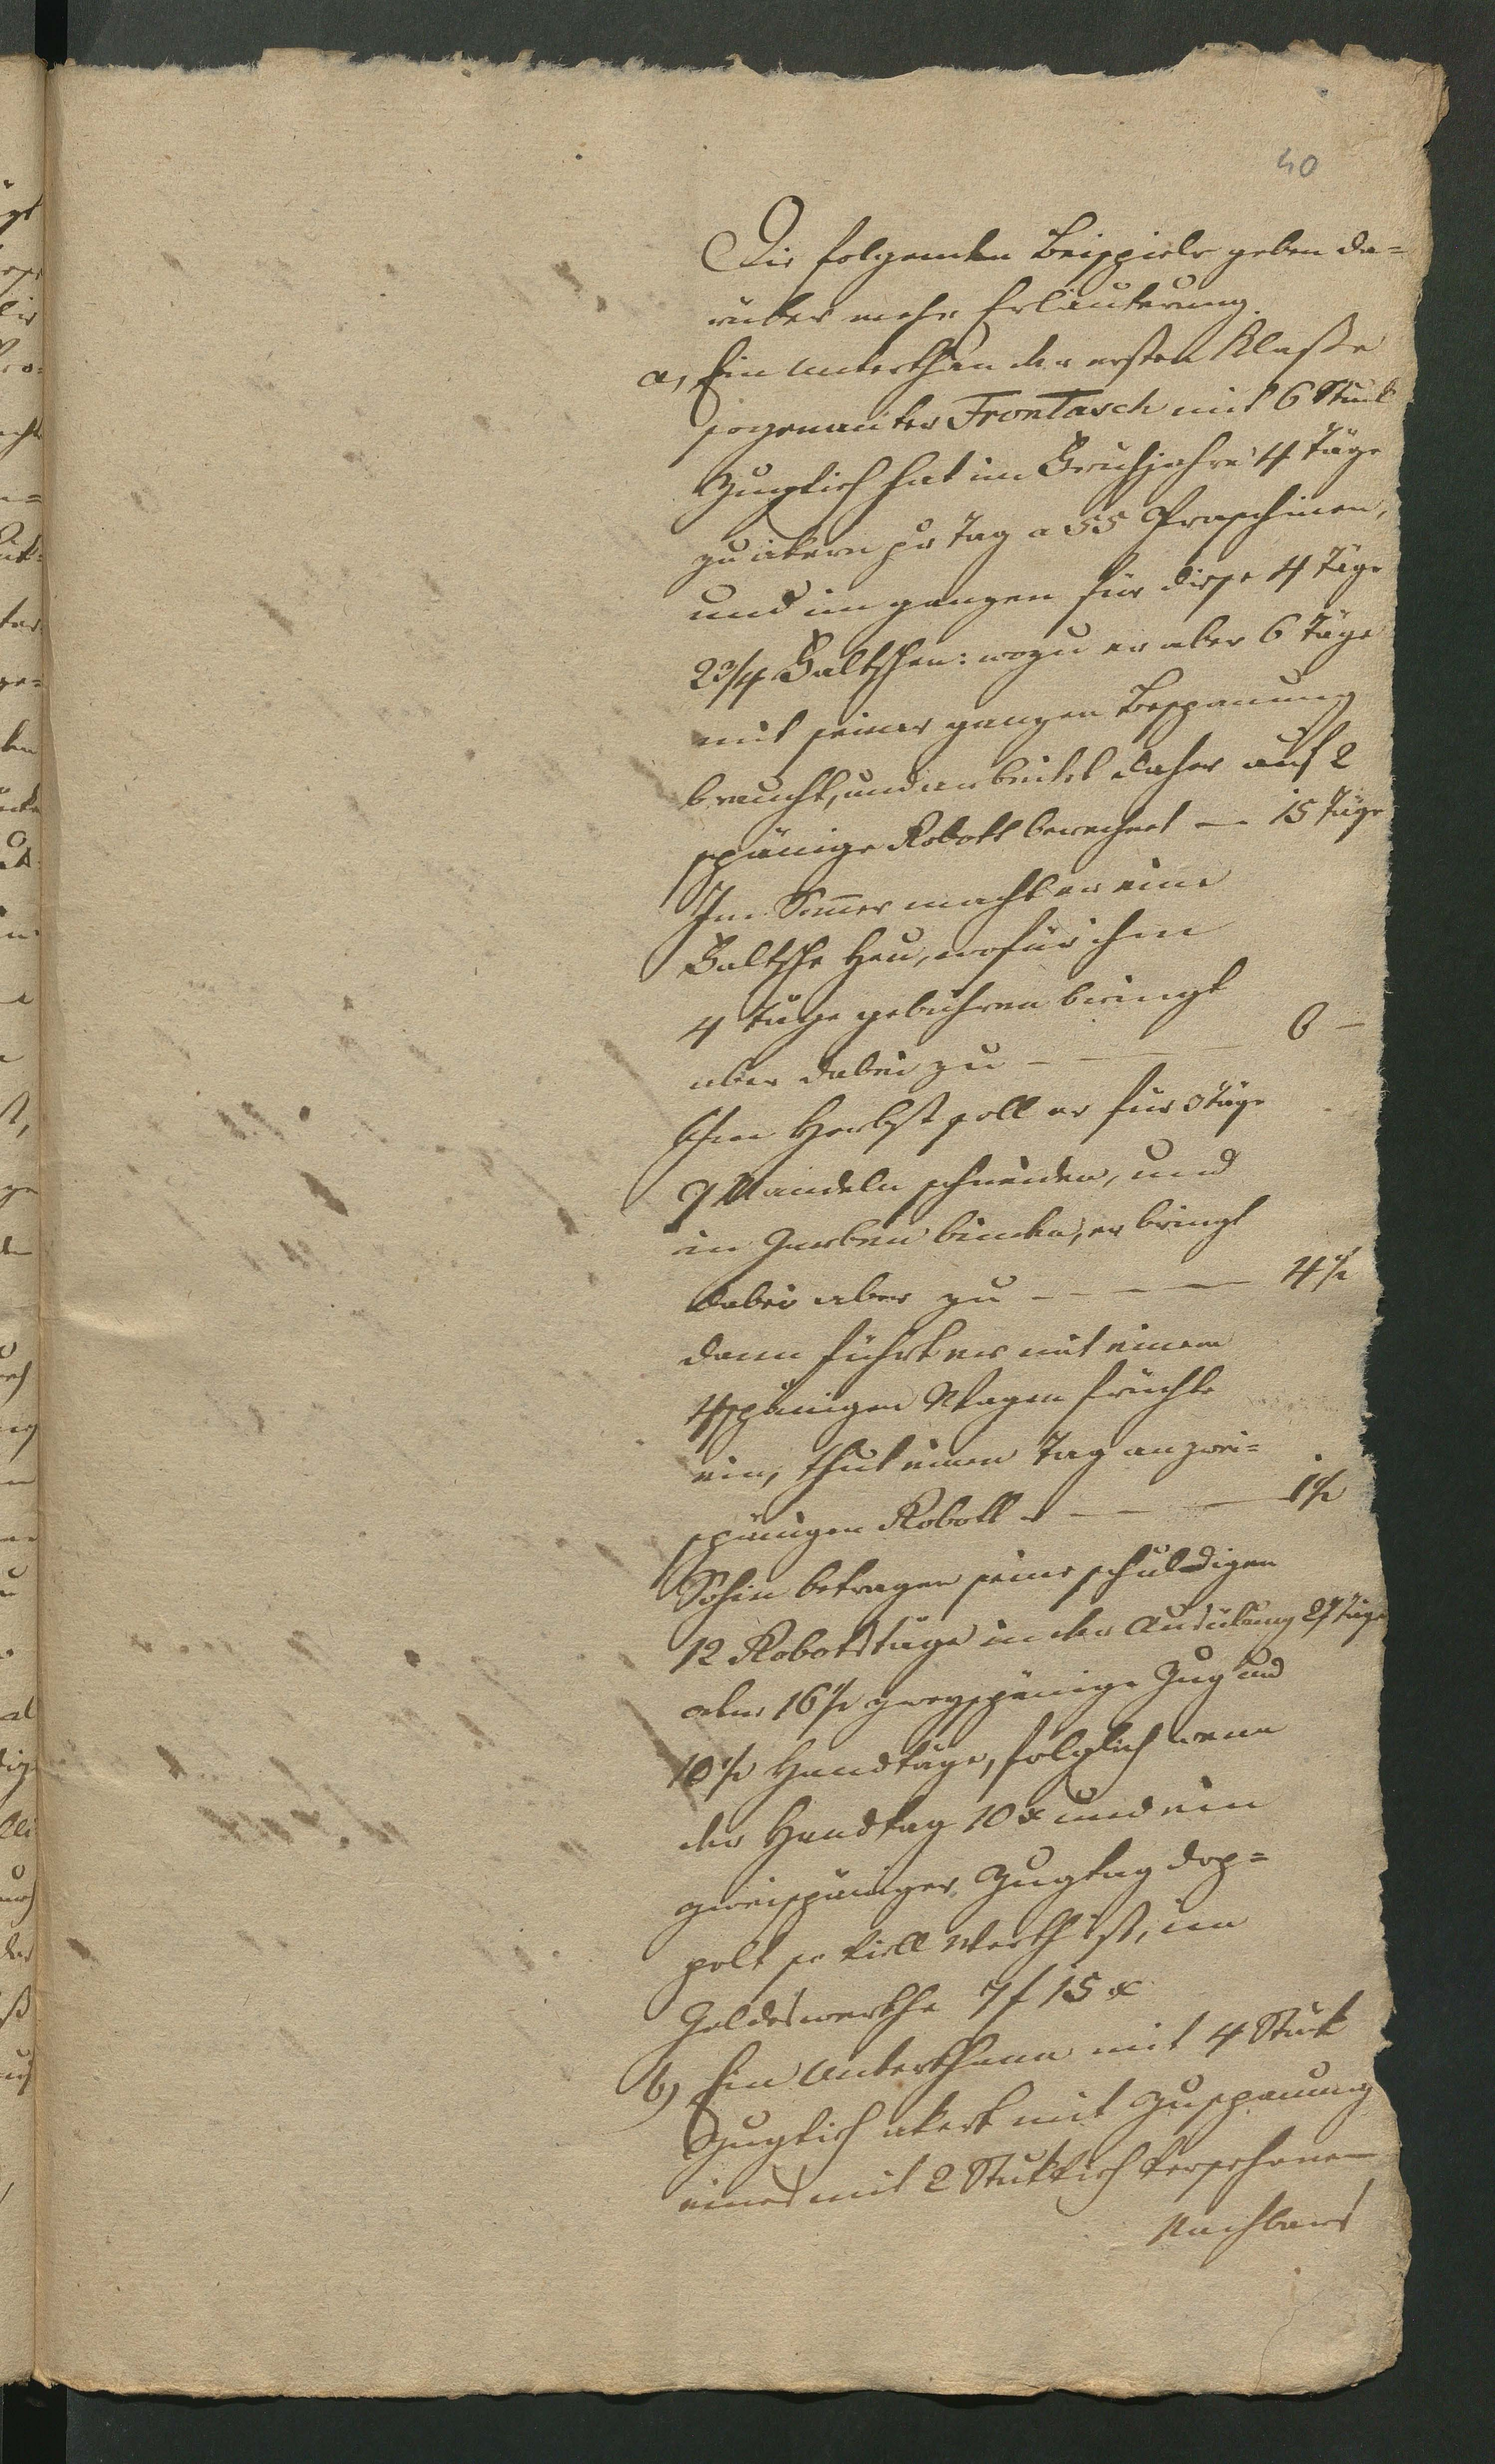 40
Die folgenden Beispiele geben da=
rüber mehr Erläuterung.
a, Ein Unterthan der ersten Klaße
sogenanter Frontasch mit 6 Stück
Zugvieh hat im Frühjahre 4 Täge
zu akern pr Tag a 55 Praschinen,
und im ganzen für diese 4 Täge
2 3/4 Faltschen: wozu er aber 6 Täge
mit seiner ganzen Bespannung
braucht, und arbeitet daher auf 2
spänige Robott berechnet — 15 Täge
Im Somer macht er eine
Faltsche Heu, wofür ihm
4 Täge gebühren bringt
aber dabei zu - — — 6 —
Im Herbst soll er für 3 Täge
7 Mandeln schneiden, und
in Garben binden, er bringt
dabei aber zu - - - — 4 1/2
dann führt er mit einem
4spänigen Wagen Früchte
ein, thut einen Tag an zwei=
spänigen Robott - — — 1 1/2
Sohin betragen seine schuldigen
12 Robotstäge in der Ausübung 27 Täge
oder 16 1/2 zweyspänige Zug und
10 1/2 Handtäge, folglich wenn
der Handtag 10 x und ein
zweispäniger Zugtag dop=
pelt so viell Werth ist, im
Geldeswerthe 7 f 15 x
b) Ein Unterthann mit 4 Stük
Zugvieh akert mit Zuspannung
eines mit 2 Stük Vieh versehenen
Nachbars